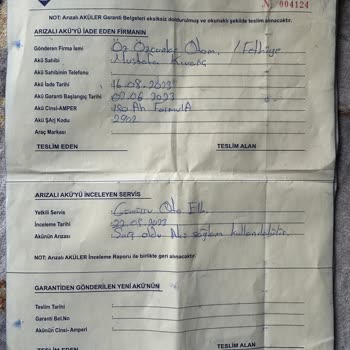 NOT: Arızalı AKÜLER Garanti Belgeleri eksiksiz doldurulmuş ve okunaklı şekilde teslim alınacaktır.
№ 004124
ARIZALI AKÜ'YÜ İADE EDEN FİRMANIN
Gönderen Firma İsmi Öz Özcanlar Otom. / Fethiye
Akü Sahibi Mustafa Kıvanç
Akü Sahibinin Telefonu
Akü İade Tarihi 16.08.2023
Akü Garanti Başlangıç Tarihi 02.06.2023
Akü Cinsi-AMPER 180 Ah Formul A
Akü Şarj Kodu 2902
Araç Markası
TESLİM EDEN TESLİM ALAN
ARIZALI AKÜ'YÜ İNCELEYEN SERVİS
Yetkili Servis Oto Elk.
İnceleme Tarihi 22.08.2023
Akünün Arızası Şarj oldu sağlam kullanılabilir.
NOT: Arızalı AKÜLER İnceleme Raporu ile birlikte geri alınacaktır.
GARANTİDEN GÖNDERİLEN YENİ AKÜ'NÜN
Teslim Tarihi
Garanti Bel.No
Akünün Cinsi-Amperi
TESLİM EDEN TESLİM ALAN